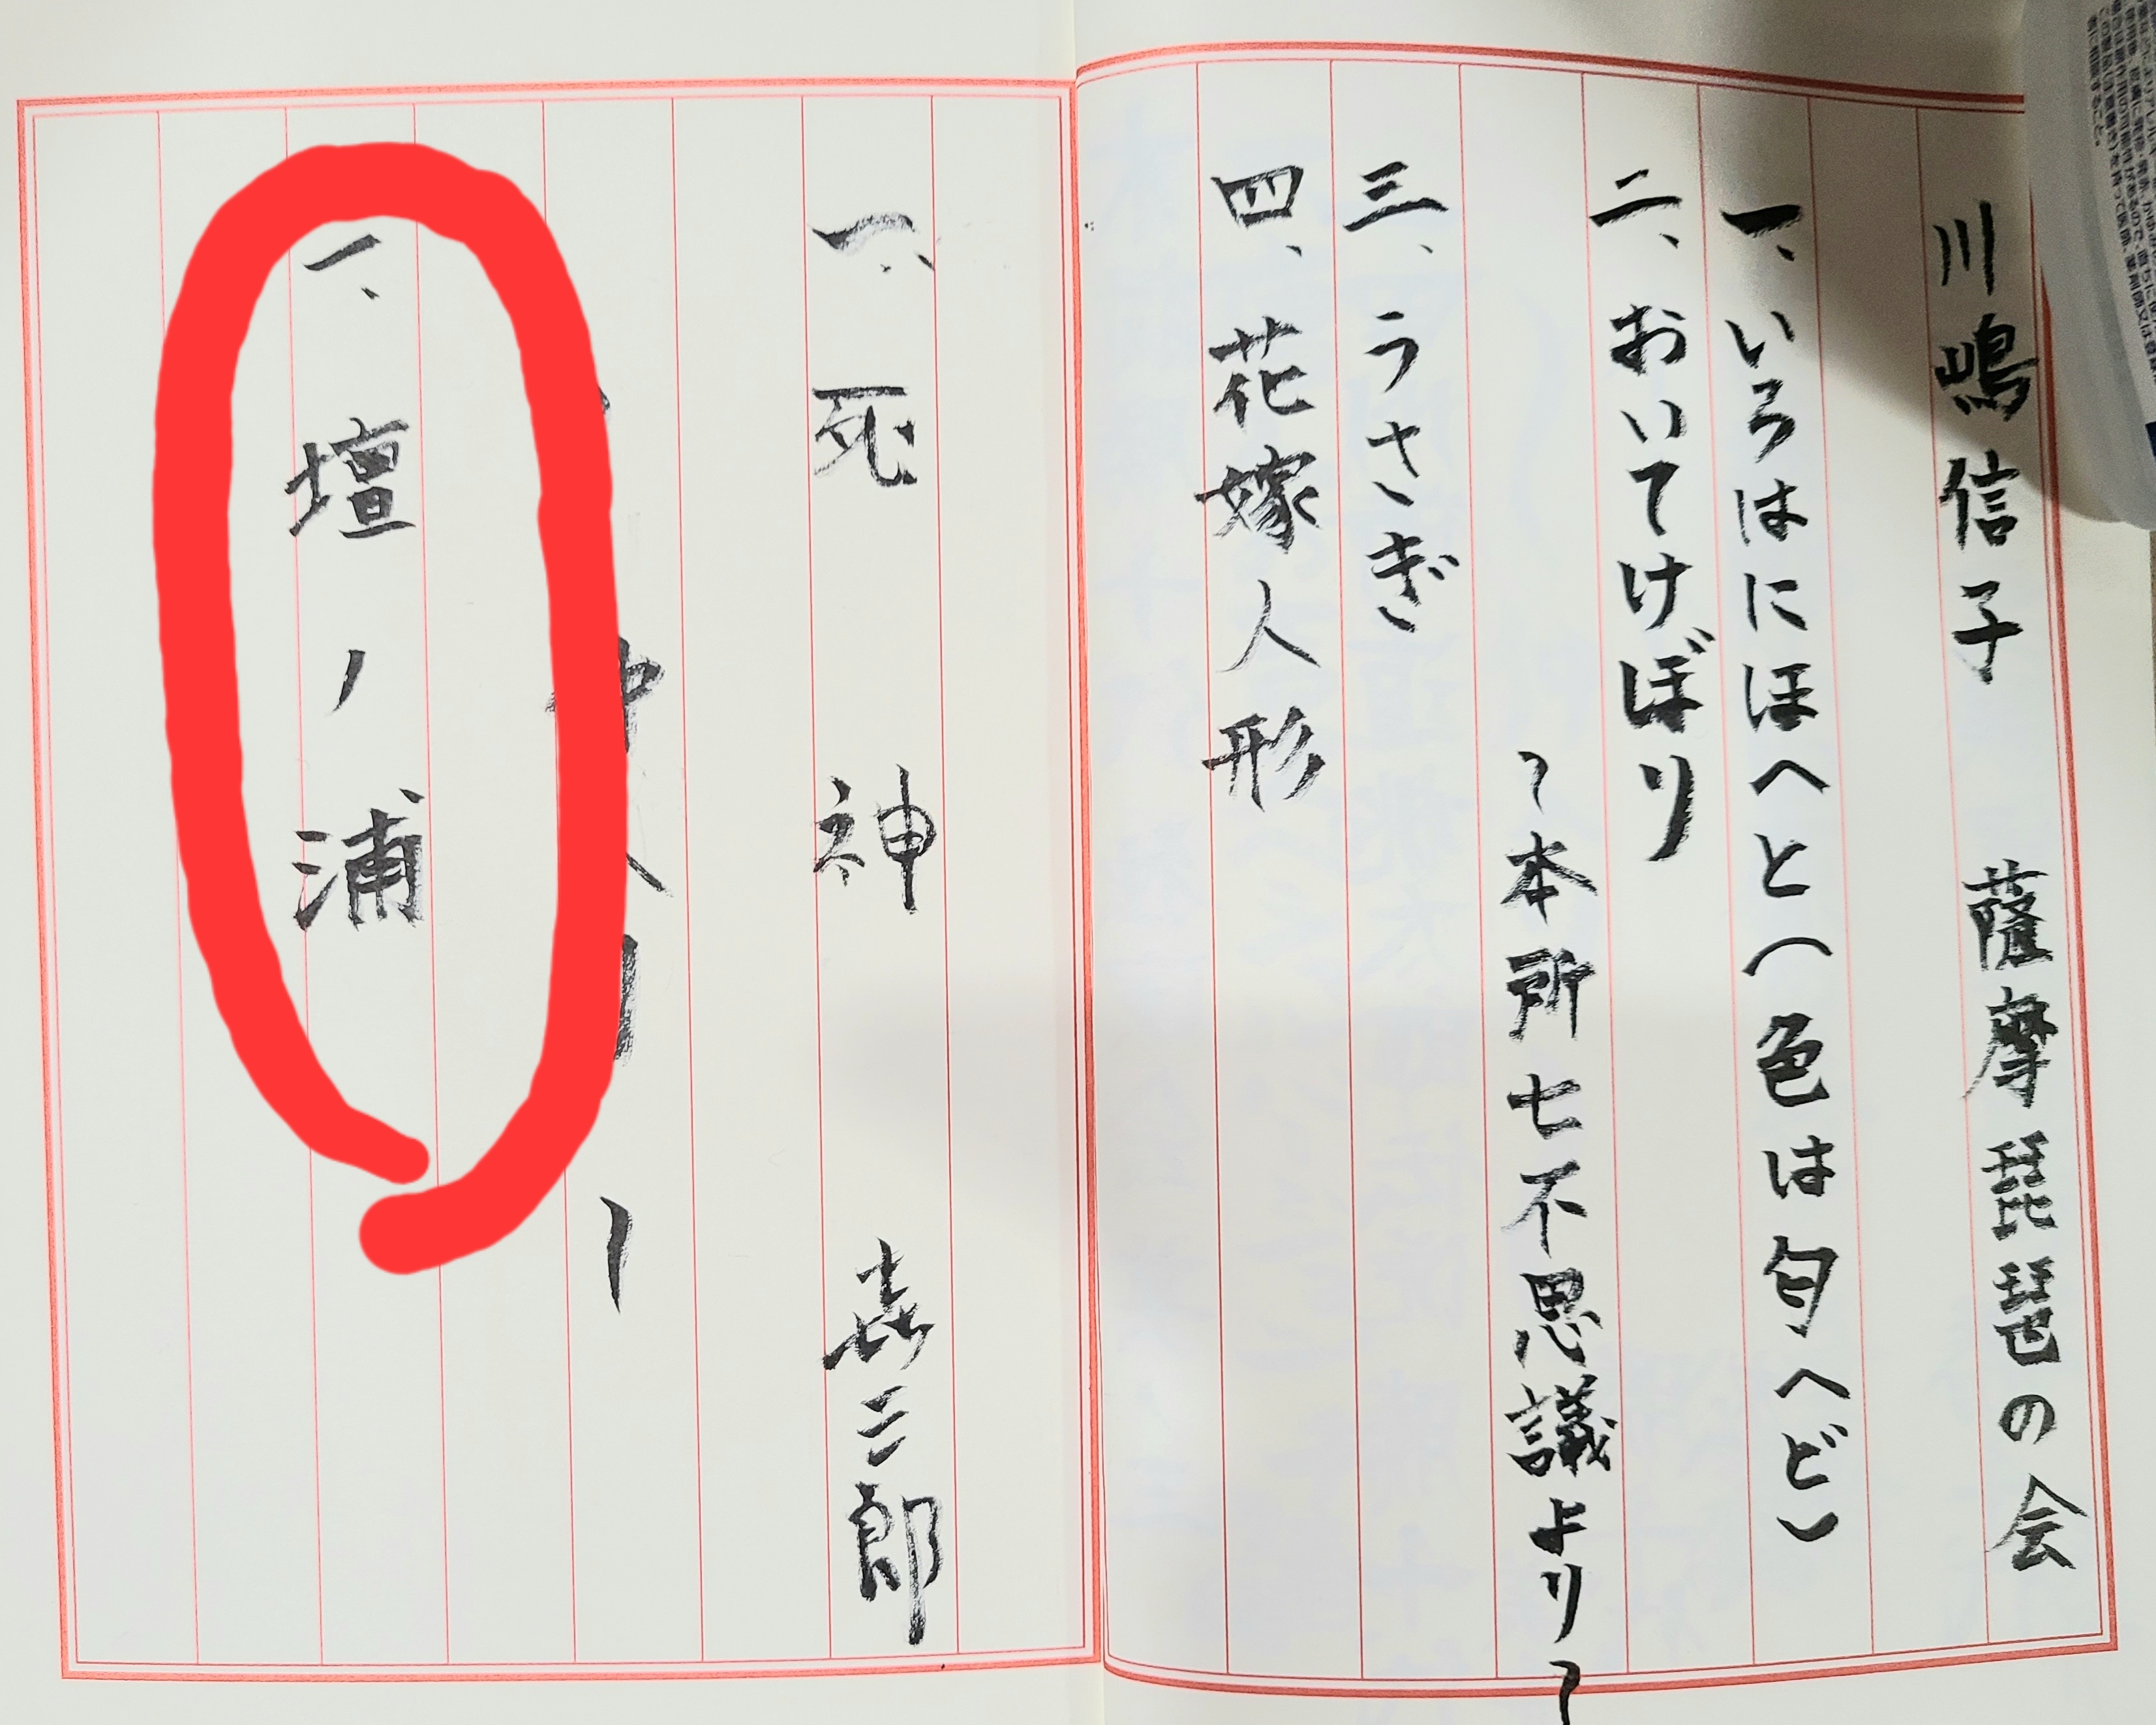 川嶋信子　薩摩琵琶の会
一、いろはにほへと（色は匂へど）
二、おいてけぼり
〜本所七不思議より〜
三、うさぎ
四、花嫁人形
一、死神　㐂三郎
一、壇ノ浦